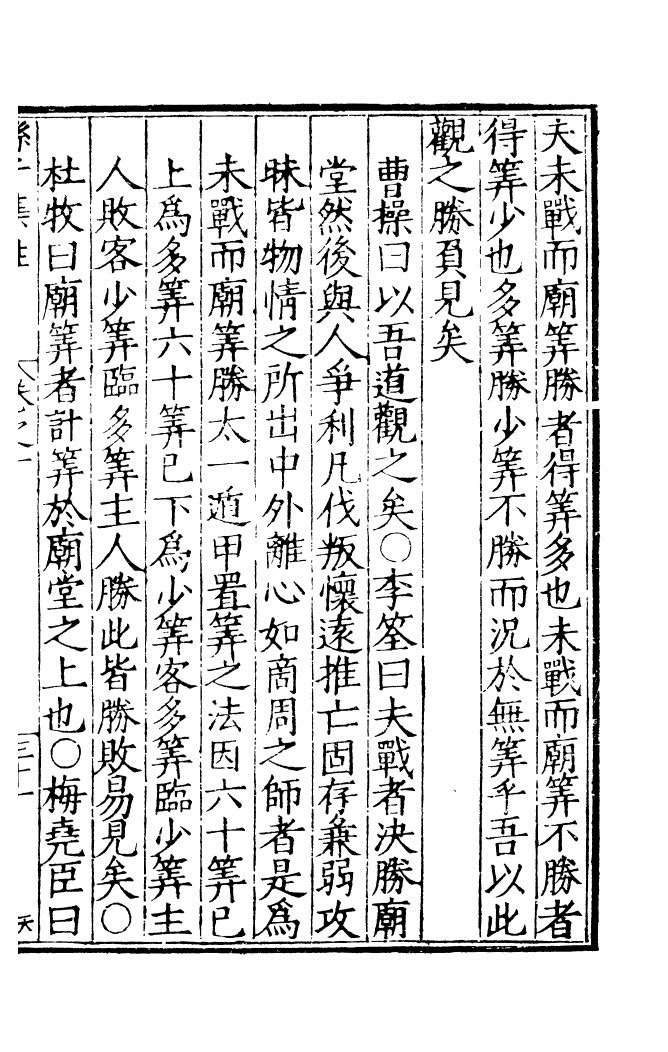 夫未戰而廟筭勝者得筭多也未戰而廟筭不勝者
得筭少也多筭勝少筭不勝而況於無筭乎吾以此
觀之勝負見矣
曹操曰以吾道觀之矣○李筌曰夫戰者決勝廟
堂然後與人爭利凡伐叛懷遠推亡固存兼弱攻
昧皆物情之所出中外離心如商周之師者是為
未戰而廟筭勝太一遁甲置筭之法因六十筭已
上為多筭六十筭已下為少筭客多筭臨少筭主
人敗客少筭臨多筭主人勝此皆勝敗易見矣○
杜牧曰廟筭者計筭於廟堂之上也○梅堯臣曰